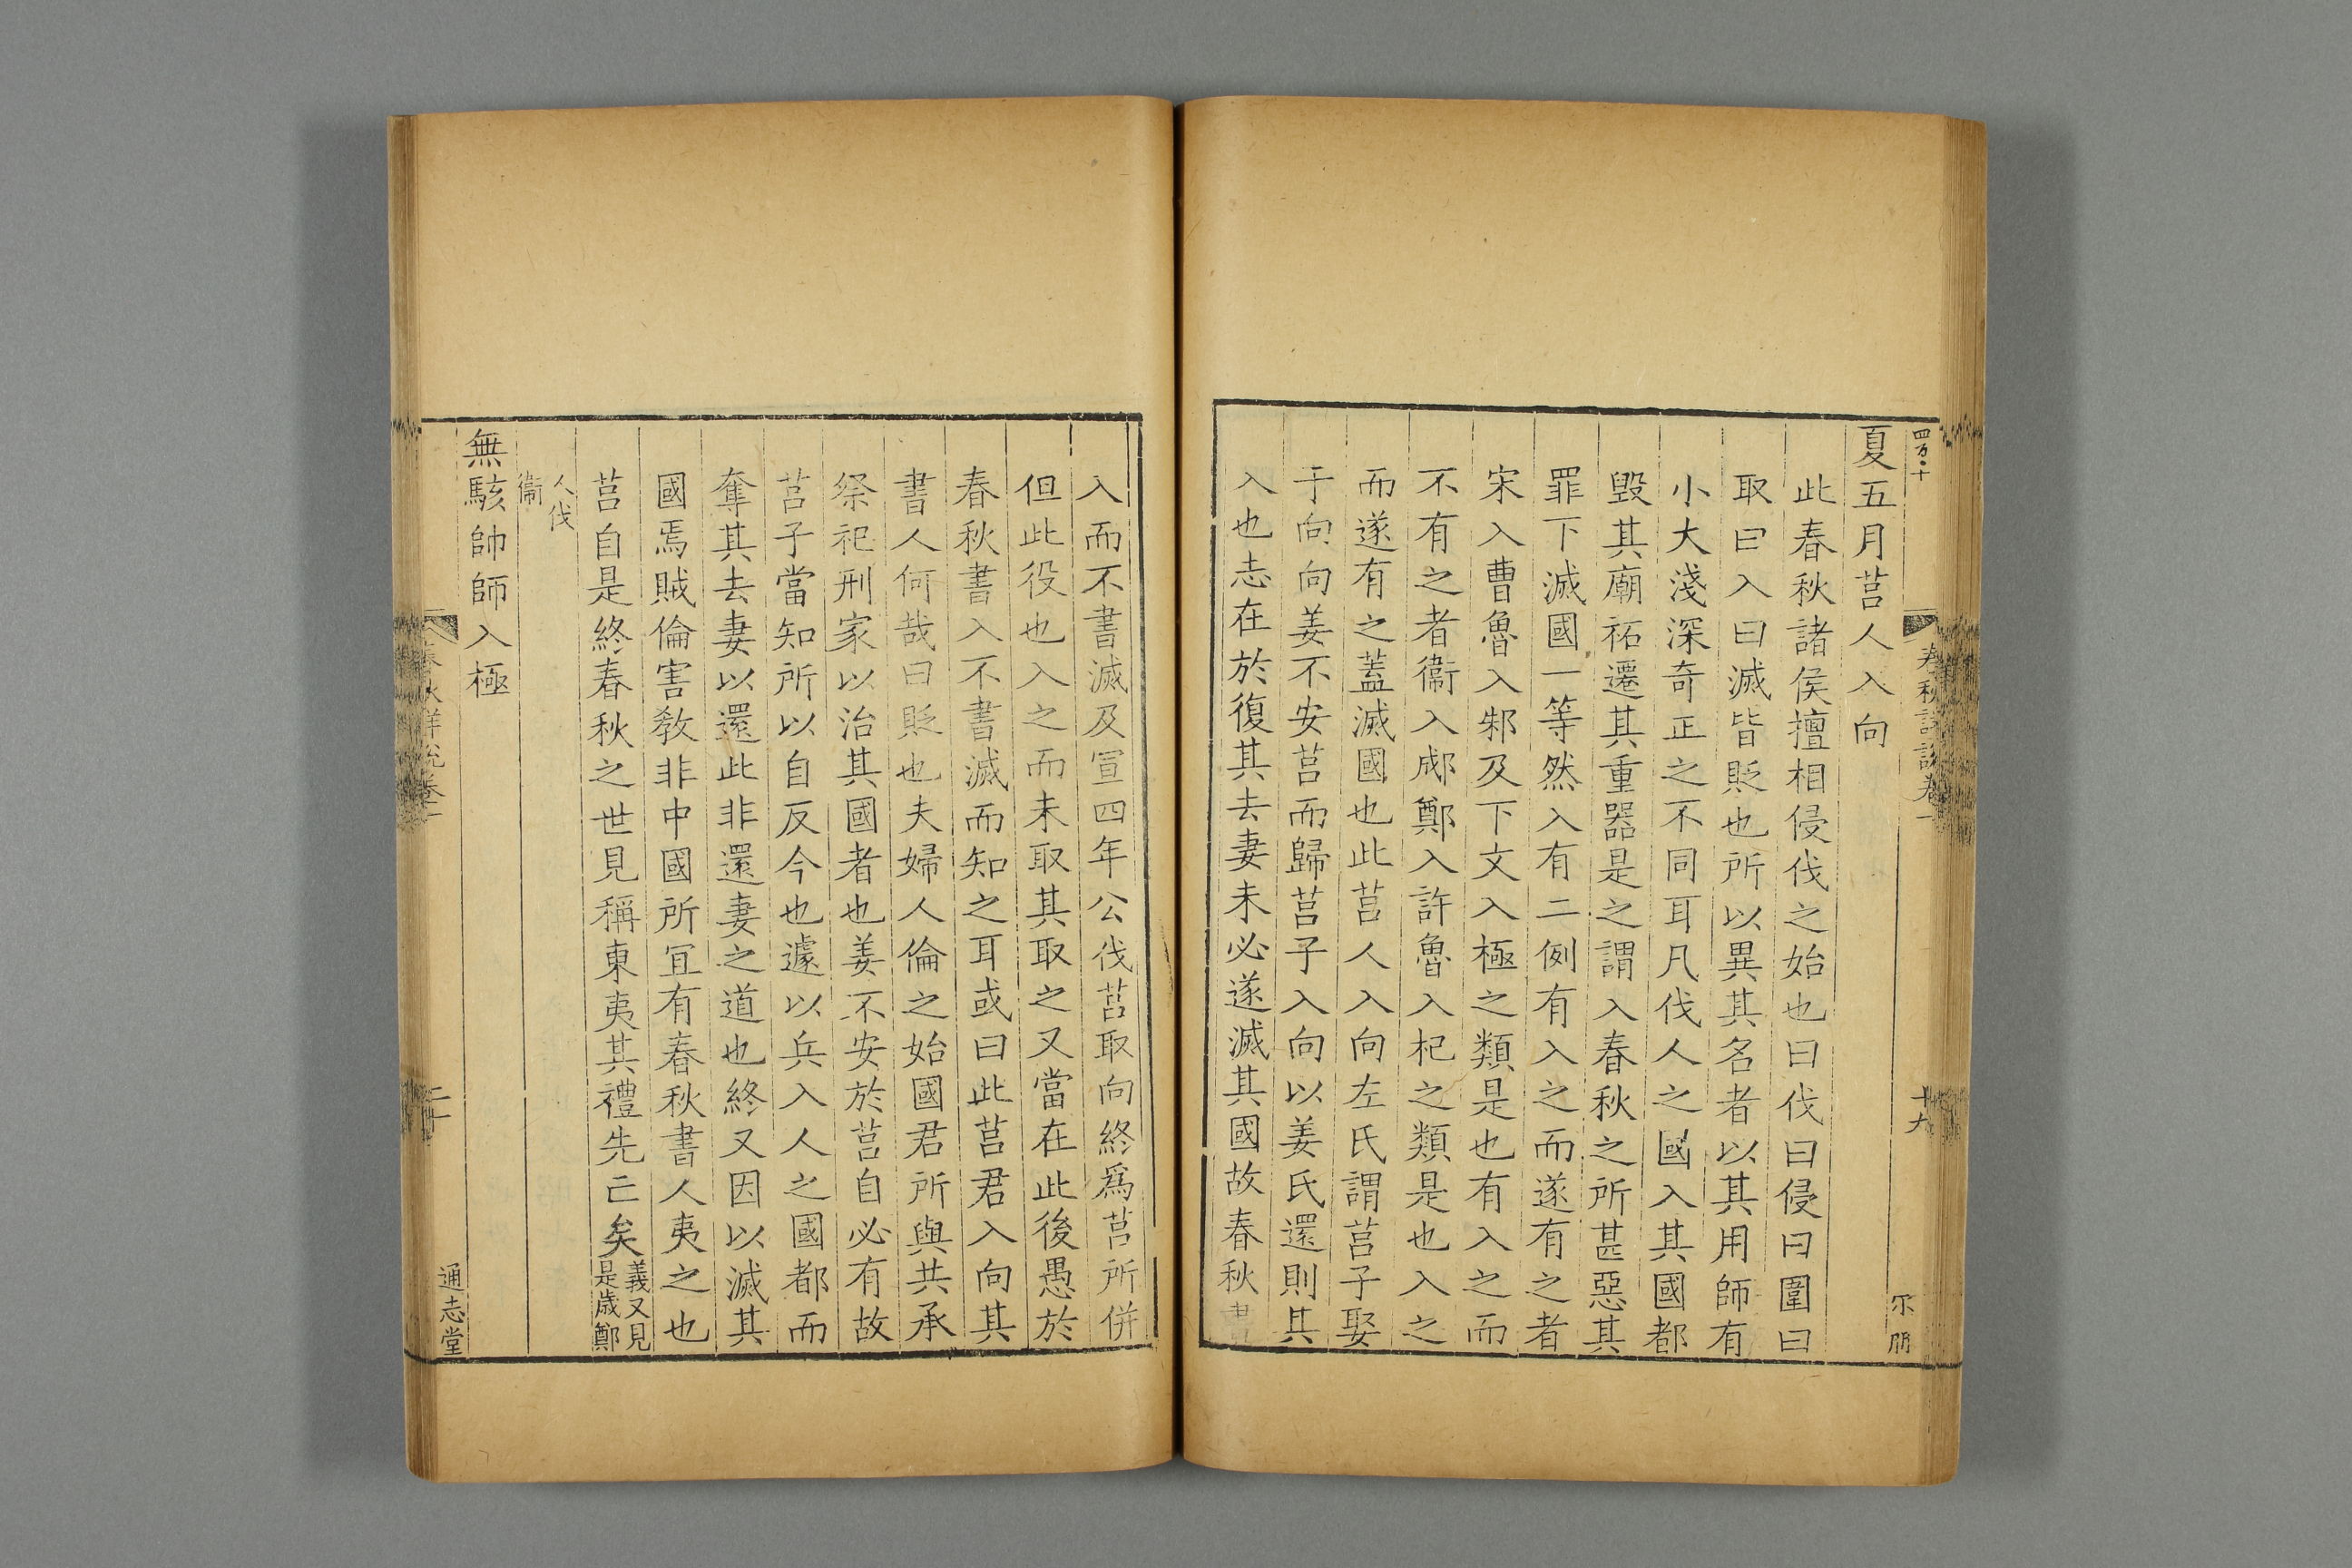 夏五月莒人入向
此春秋諸侯擅相侵伐之始也曰伐曰侵曰圍曰
取曰入曰滅皆貶也所以異其名者以其用師有
小大淺深奇正之不同耳凡伐人之國入其國都
毀其廟祏遷其重器是之謂入春秋之所甚惡其
罪下滅國一等然入有二例有入之而遂有之者
宋入曹魯入邾及下文入極之類是也有入之而
不有之者衞入郕鄭入許魯入杞之類是也入之
而遂有之蓋滅國也此莒人入向左氏謂莒子娶
于向向姜不安莒而歸莒子入向以姜氏還則其
入也志在於復其去妻未必遂滅其國故春秋書
四百十
春秋詳說卷一
十九
尔朋
入而不書滅及宣四年公伐莒取向終爲莒所併
但此役也入之而未取其取之又當在此後愚於
春秋書入不書滅而知之耳或曰此莒君入向其
書人何哉曰貶也夫婦人倫之始國君所與共承
祭祀刑家以治其國者也姜不安於莒自必有故
莒子當知所以自反今也遽以兵入人之國都而
奪其去妻以還此非還妻之道也終又因以滅其
國焉賊倫害敎非中國所宜有春秋書人夷之也
莒自是終春秋之世見稱東夷其禮先亡矣義又見是歲鄭
人伐衞
無駭帥師入極
春秋詳說卷一
二十
通志堂